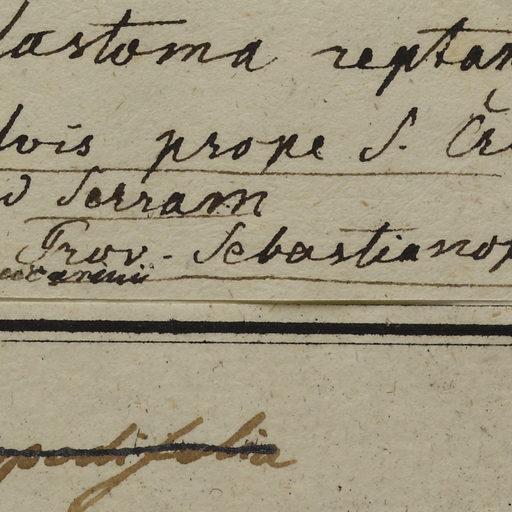 lastoma reptan
lvis prope S. Cr
d Serram
Prov. Sebastianop
pedifolia